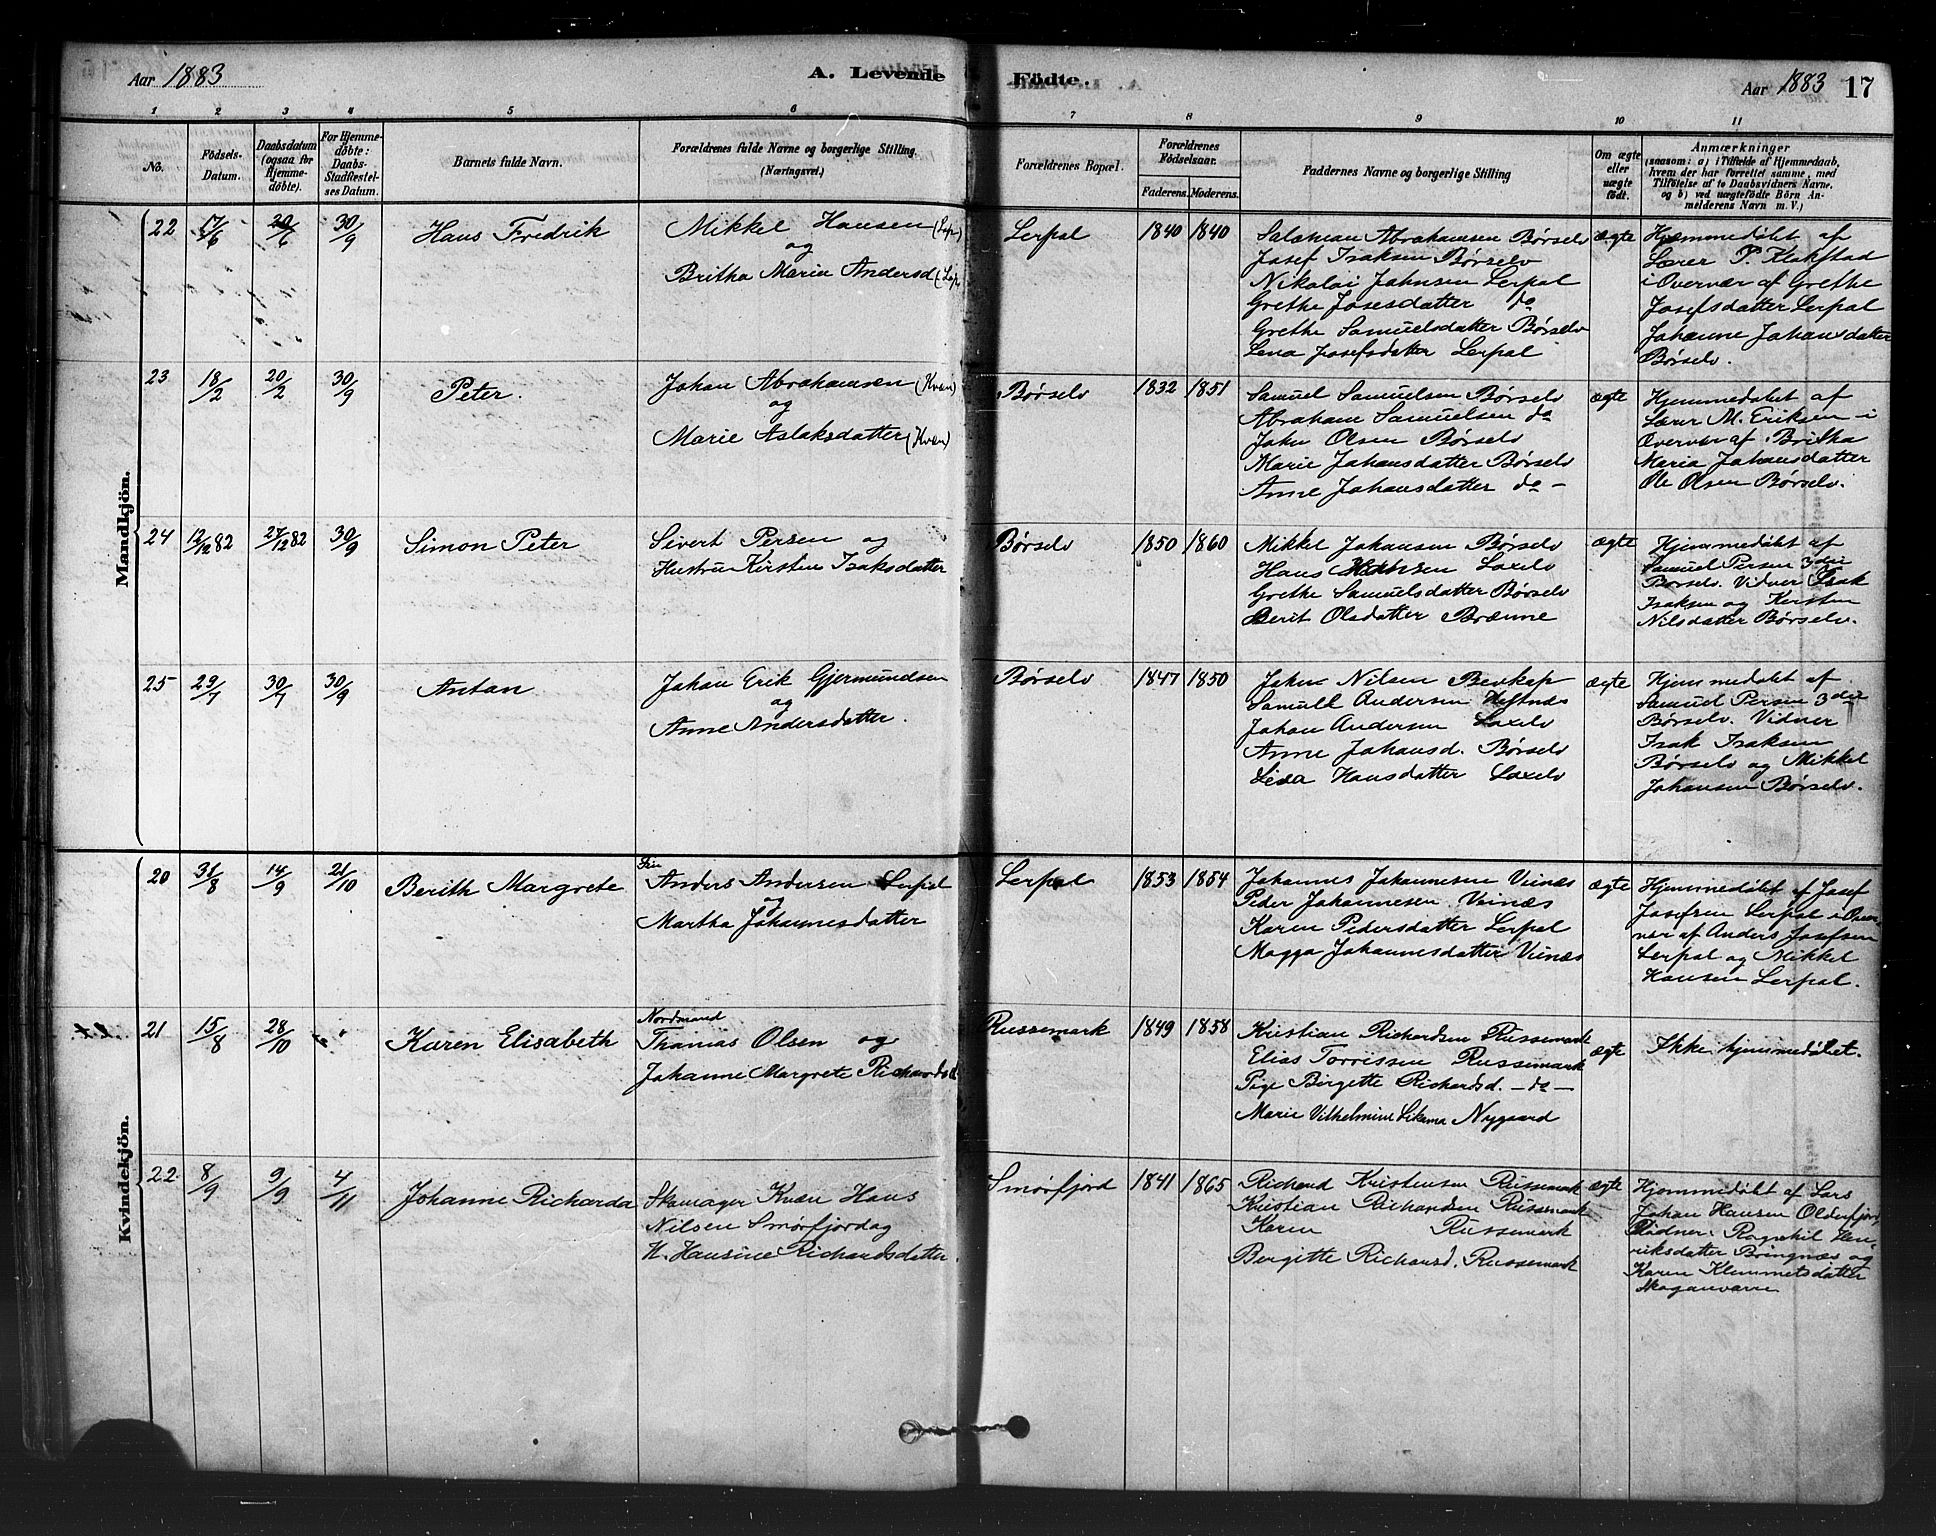 Aar 1883
A. Levende
Födte.
Aar 1883 17
1 2 3 4 5 6 7 8 9 10 11
No.
Födsels-
Datum.
Daabsdatum
(ogsaa for
Hjemme-
döbte).
For Hjemme-
döbte:
Daabs-
Stadfæstel-
ses Datum.
Barnets fulde Navn.
Forældrenes fulde Navne og borgerlige Stilling.
(Næringsvei.)
Forældrenes Bopæl.
Forældrenes
Födselsaar.
Faderens. Moderens.
Faddernes Navne og borgerlige Stilling
Om ægte
eller
uægte
födt.
Anmærkninger
(saasom: a) i Tilfælde af Hjemmedaab,
hvem der har forrettet samme, med
Tilföielse af to Daabsvidners Navne,
og b) ved uægtefödte Börn An-
melderens Navn m. V.)
Mandkjön.
22 17/6 20/6 30/9 Hans Fredrik
Mikkel Hansen (Lap)
og
Britha Maria Andersd (Lap
Lerpol 1840 1840
Salamon Abrahamsen Børselv
Josef Isaksen Børselv
Nikolai Johnsen Lerpol
Grethe Josefsdatter do
Grethe Samuelsdatter Børselv
Lena Josefsdatter Lerpol
ægte
Hjemmedøbt af
Lærer P. Klokstad
i Overvær af Grethe
Josefsdatter Lerpol
Johanne Johansdatter
Børselv.
23 18/2 20/2 30/9 Peter.
Johan Abrahamsen (Kvæn)
og
Marie Aslaksdatter (Kvæn)
Børselv 1832 1851
Samuel Samuelsen Børselv
Abraham Samuelsen do
John Olsen Børselv
Marie Johansdatter Børselv
Anne Johansdatter do -
ægte
Hjemmedøbt af
Lærer M. Eriksen i
Overvær af Britha
Maria Johansdatter
Ole Olsen Børselv.
24 12/12 82 27/12 82 30/9 Simon Peter
Sivert Persen og
Hustru Kirsten Isaksdatter
Børselv 1850 1860
Mikkel Johansen Børselv
Hans Laxelv
Grethe Samuelsdatter Børselv
Berit Olsdatter Brænne
ægte
Hjemmedøbt af
Samuel Persen 3die
Børselv. Vidner Isak
Isaksen og Kirsten
Nilsdatter Børselv.
25 29/7 30/7 30/9 Anton
Johan Erik Gjermundsen
og
Anne Andersdatter.
Børselv 1847 1850
John Nilsen Bevkop
Samuel Andersen Hestnæs
Johan Andersen Laxelv
Anne Johansd. Børselv
Lisa Hansdatter Laxelv
ægte
Hjemmedøbt af
Samuel Persen 3die
Børselv. Vidner
Isak Isaksen
Børselv og Mikkel
Johansen Børselv.
Kvindekjön.
20 31/8 14/9 21/10 Berith Margrete
Fin
Anders Andersen Lerpol
og
Martha Johannesdatter
Lerpol 1853 1854
Johannes Johannesen Veinæs
Peder Johannesen Veinæs
Karen Pedersdatter Lerpol
Magga Johannesdatter Veinæs
ægte
Hjemmedøbt af Josef
Josefsen Lerpol i Over-
vær af Anders Josefsen
Lerpol og Mikkel
Hansen Lerpol.
21 15/8 28/10 " Karen Elisabeth
Nordmand
Thomas Olsen og
Johanne Margrete Richardsd.
Russemark 1849 1858
Kristian Richardsen Russemark
Elias Torrissen Russemark
Pige Birgette Richardsd. - do -
Marie Vilhelmine Nygaard
ægte
Ikke hjemmedøbt.
22 8/9 9/9 4/11 Johanne Richarda
Skomager Kvæn Hans
Nilsen Smørfjord og
H. Hansine Richardsdatter.
Smørfjord 1841 1865
Richard Kristensen Russemark
Kristian Richardsen Russemark
Karen Russemark
Bergitte Richardsd. Russemark
ægte
Hjemmedøbt af Lars
Johan Hansen Olderfjord
Vidner. Ragnhil Hen-
riksdatter Bringnæs og
Karen Klemmetsdatter
Skoganvarre